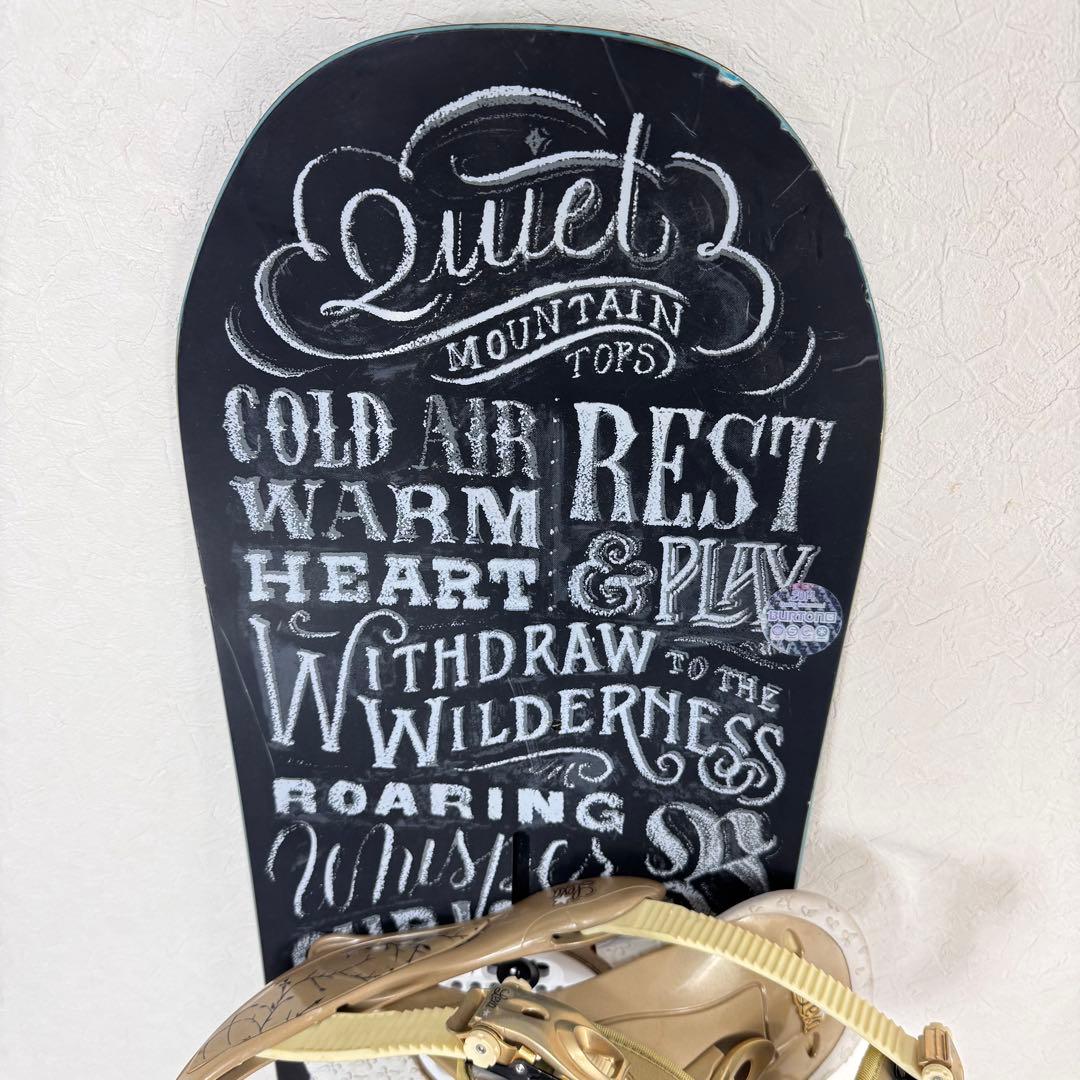 Quiet
MOUNTAIN
TOPS
COLD AIR
WARM
HEART
REST
& PLAY
WITHDRAW TO THE
WILDERNESS
ROARING
Whispers
BURTON